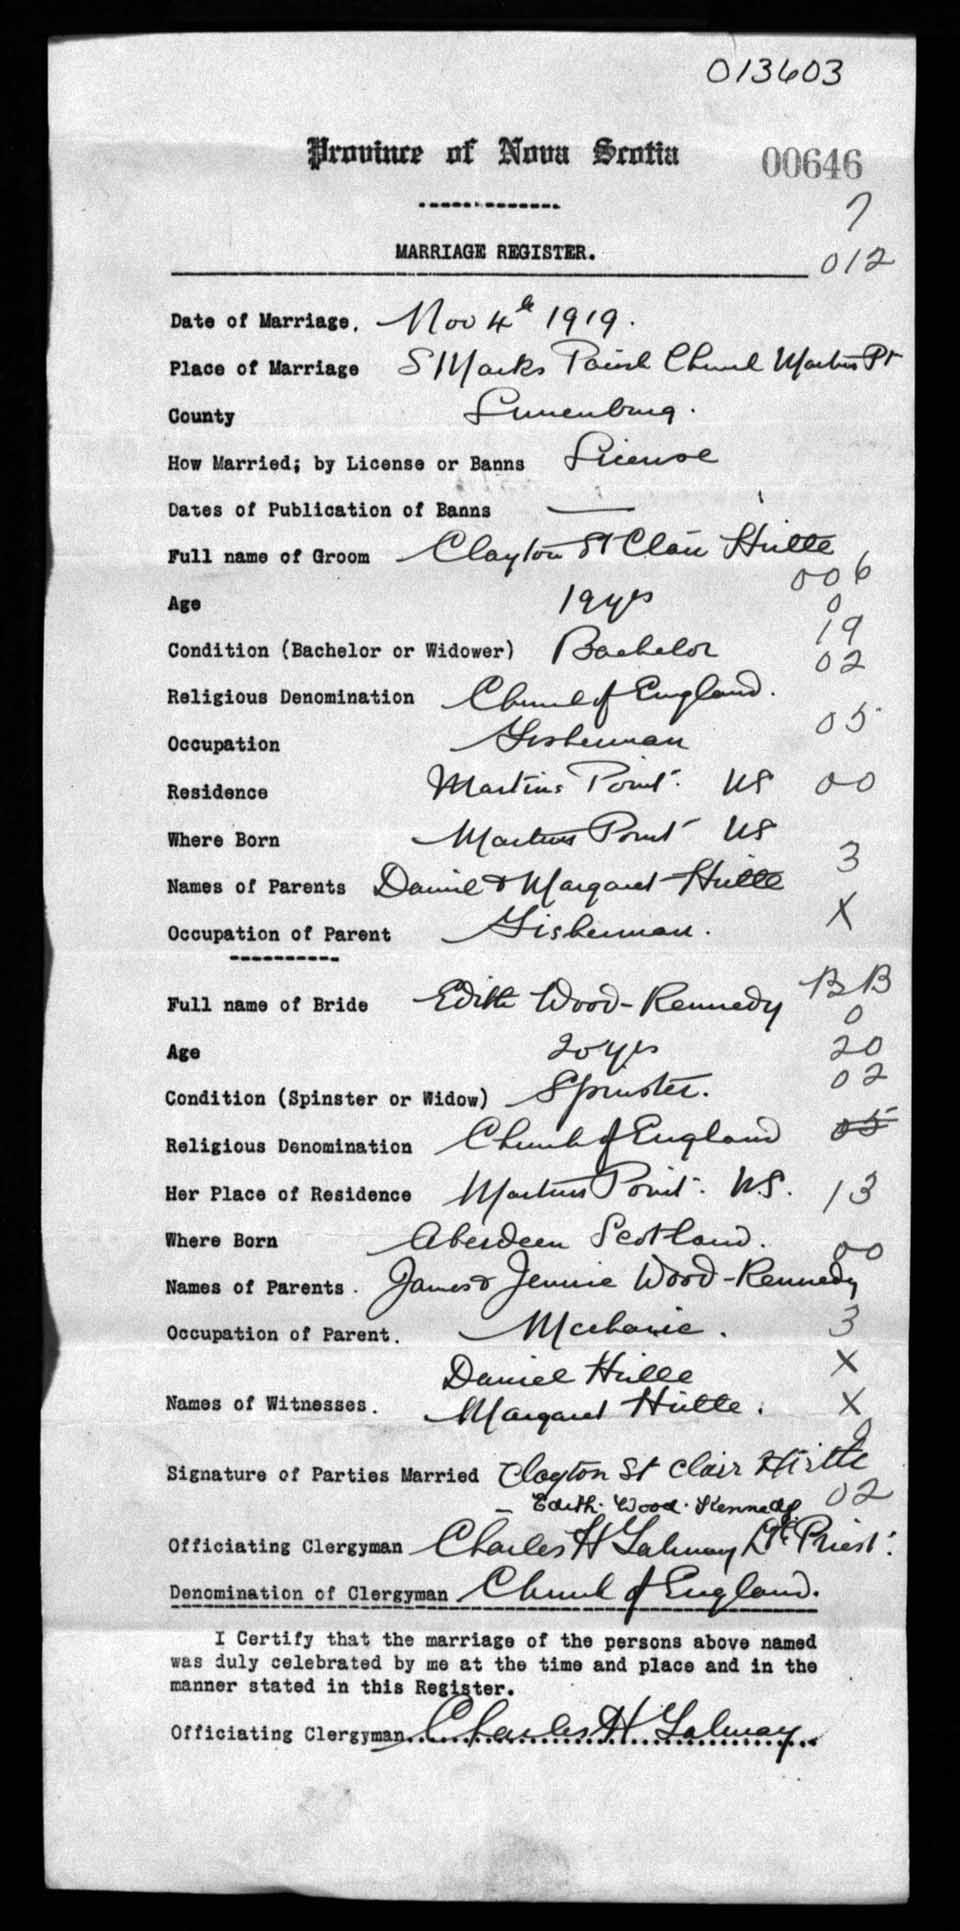 013603
Province of Nova Scotia 00646
7
MARRIAGE REGISTER.
012
Date of Marriage. Nov 4th 1919.
Place of Marriage S Marks Parish Church Martins Pt
County Lunenburg.
How Married; by License or Banns License
Dates of Publication of Banns —
Full name of Groom Clayton St Clair Hiltz
006
Age 19 yrs 0
19
Condition (Bachelor or Widower) Bachelor
02
Religious Denomination Church of England.
05
Occupation Fisherman
Residence Martins Point. NS 00
Where Born Martins Point NS
3
Names of Parents Daniel & Margaret Hiltz
X
Occupation of Parent Fisherman.
BB
Full name of Bride Edith Wood-Kennedy
0
Age 20 yrs 20
02
Condition (Spinster or Widow) Spinster.
Religious Denomination Church of England 05
Her Place of Residence Martins Point. N.S. 13
Where Born Aberdeen Scotland.
00
Names of Parents. James & Jennie Wood-Kennedy
Occupation of Parent. Mechanic. 3
Daniel Hiltz X
Names of Witnesses. Margaret Hiltz. X
Signature of Parties Married Clayton St Clair Hiltz
02
Edith. Wood. Kennedy.
Officiating Clergyman Charles H Talmay Priest.
Denomination of Clergyman Church of England.
I Certify that the marriage of the persons above named
was duly celebrated by me at the time and place and in the
manner stated in this Register.
Officiating Clergyman Charles H Talmay